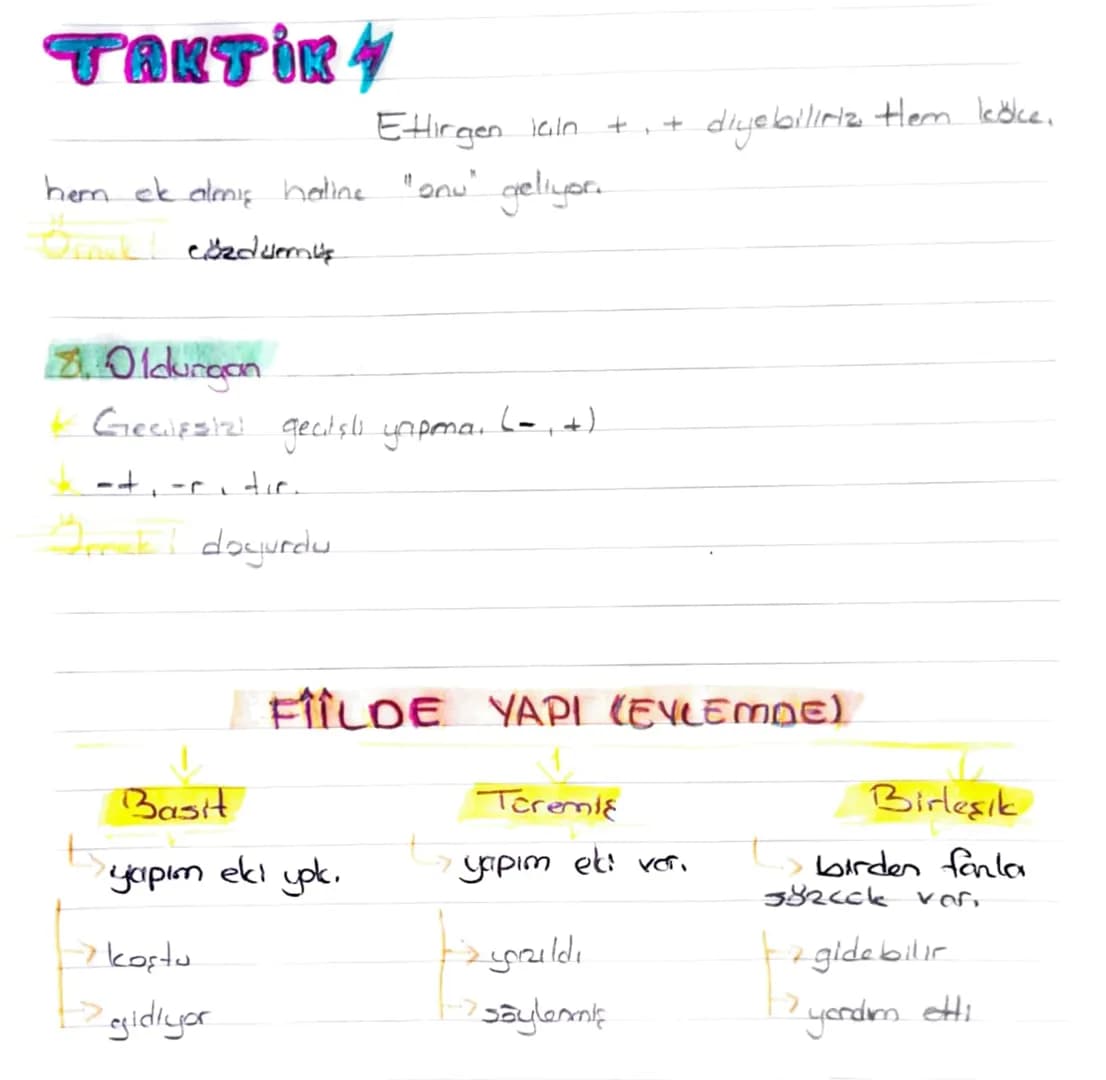 TAKTİK
Ettirgen için +, + diyebiliriz. Hem köke,
hem ek almış haline "onu" geliyor.
Örnek: çözdürmüş
8. Oldurgan
Geçişsizi geçişli yapma. (-, +)
-t, -r, tır.
Örnek: doyurdu
FİİLDE YAPI (EYLEMDE)
Basit Türemiş Birleşik
yapım eki yok. yapım eki var. birden fazla
sözcük var.
koştu yazıldı gidebilir
gidiyor söylenmiş yardım etti